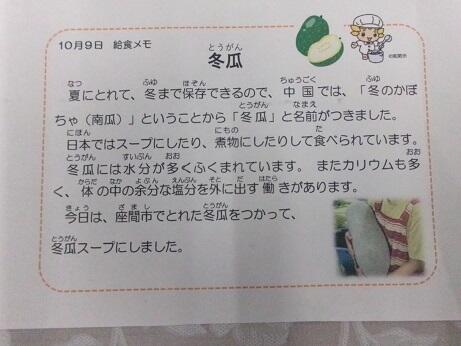 10月9日 給食メモ
とうがん
冬瓜
なつ ふゆ ほぞん ちゅうごく ふゆ
夏にとれて、冬まで保存できるので、中国では、「冬のかぼ
とうがん なまえ
ちゃ（南瓜）」ということから「冬瓜」と名前がつきました。
にほん にもの た
日本ではスープにしたり、煮物にしたりして食べられています。
とうがん すいぶん おお
冬瓜には水分が多くふくまれています。またカリウムも多
からだ なか よぶん えんぶん そと だ はたら
く、体の中の余分な塩分を外に出す働きがあります。
きょう ざまし とうがん
今日は、座間市でとれた冬瓜をつかって、
とうがん
冬瓜スープにしました。